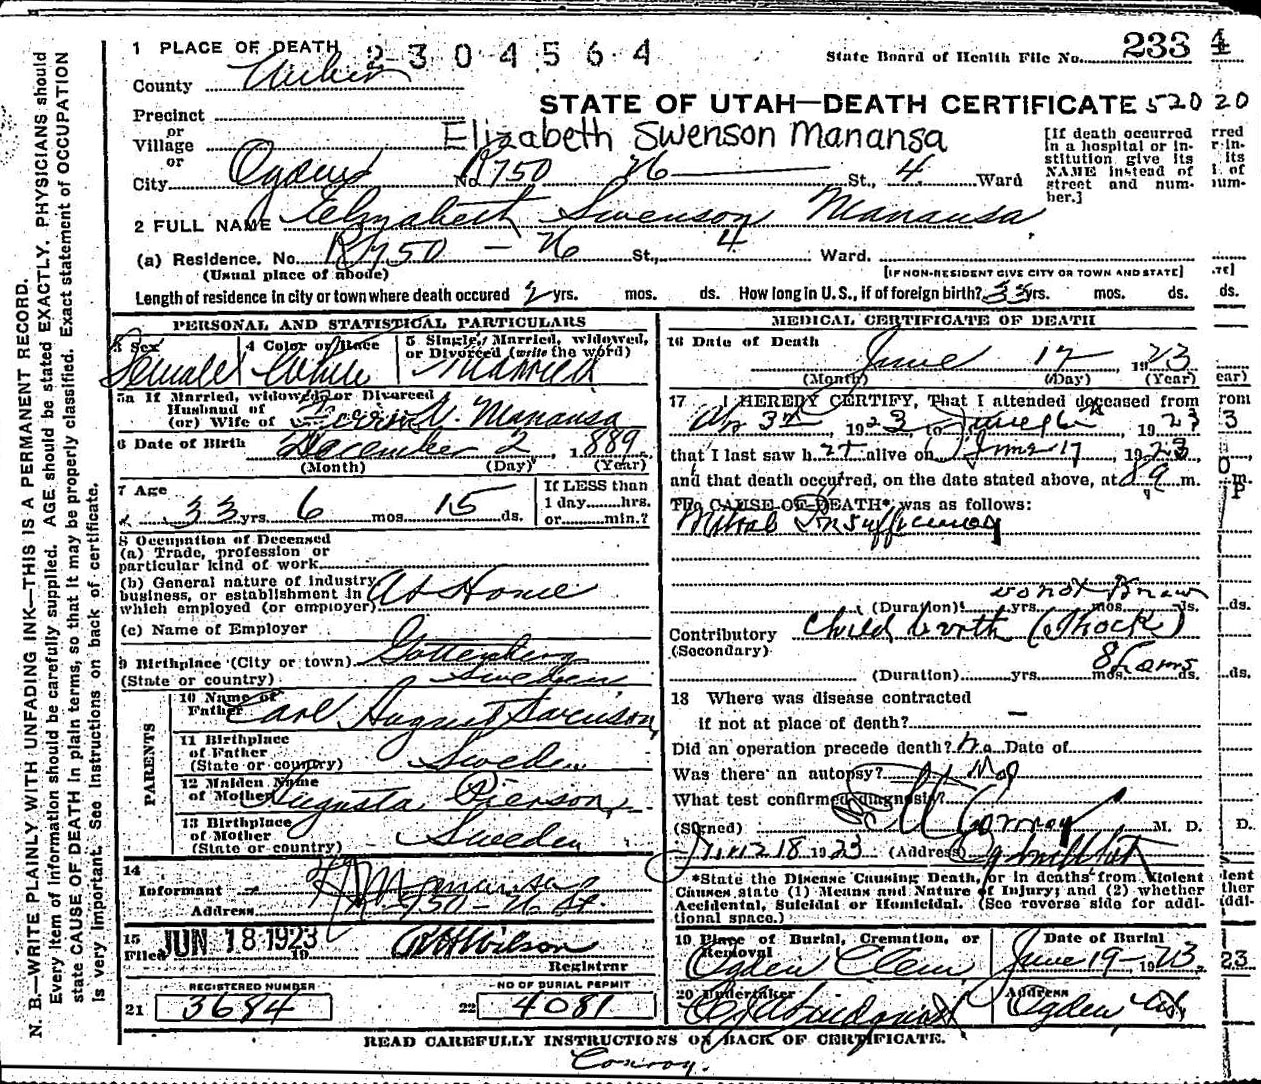 1 PLACE OF DEATH 2304564 State Board of Health File No. 233 4
County Weber
STATE OF UTAH—DEATH CERTIFICATE 520 20
Precinct
or
Village Elizabeth Swenson Manansa
or
City Ogden No. R750 26 St., 4 Ward
[If death occurred in a hospital or institution give its NAME instead of street and number.]
2 FULL NAME Elizabeth Swenson Manansa
(a) Residence. No. R750 - 26 St., 4 Ward.
(Usual place of abode) [IF NON-RESIDENT GIVE CITY OR TOWN AND STATE]
Length of residence in city or town where death occured 2 yrs. mos. ds. How long in U.S., if of foreign birth? 33 yrs. mos. ds.
PERSONAL AND STATISTICAL PARTICULARS
3 Sex 4 Color or Race 5 Single, Married, widowed, or Divorced (write the word)
Female White Married
5a If Married, widowed, or Divorced
Husband of
(or) Wife of Manansa
6 Date of Birth December 2, 1889
(Month) (Day) (Year)
7 Age 33 yrs. 6 mos. 15 ds.
If LESS than
1 day hrs.
or min.?
8 Occupation of Deceased
(a) Trade, profession or
particular kind of work
(b) General nature of industry,
business, or establishment in
which employed (or employer) At Home
(c) Name of Employer
9 Birthplace (City or town) Gottenberg
(State or country) Sweden
PARENTS
10 Name of
Father Carl August Swenson
11 Birthplace
of Father
(State or country) Sweden
12 Maiden Name
of Mother Augusta Pierson
13 Birthplace
of Mother
(State or country) Sweden
14
Informant Manansa
Address 750 - 26 St.
15
Filed JUN 18 1923 19 Wilson
Registrar
REGISTERED NUMBER
21 3684
NO OF BURIAL PERMIT
22 4081
MEDICAL CERTIFICATE OF DEATH
16 Date of Death
June 17 1923
(Month) (Day) (Year)
17 I HEREBY CERTIFY, That I attended deceased from
Ap 3rd, 1923, to June 16th, 1923
that I last saw her alive on June 17, 1923,
and that death occurred, on the date stated above, at 8 a m.
The CAUSE OF DEATH* was as follows:
Mitral Insufficiency
do not Know
(Duration) yrs. mos. ds.
Contributory Child birth (Shock)
(Secondary)
8 hours
(Duration) yrs. mos. ds.
18 Where was disease contracted
if not at place of death? —
Did an operation precede death? no Date of
Was there an autopsy? No
What test confirmed diagnosis?
(Signed) Conroy M. D.
June 18 1923 (Address) Ogden Utah
*State the Disease Causing Death, or in deaths from Violent
Causes state (1) Means and Nature of Injury; and (2) whether
Accidental, Suicidal or Homicidal. (See reverse side for additional space.)
19 Place of Burial, Cremation, or Removal Date of Burial
Ogden Cem June 19 - 1923
20 Undertaker Address
Ogden Utah
READ CAREFULLY INSTRUCTIONS ON BACK OF CERTIFICATE.
Conroy.
N. B.—WRITE PLAINLY WITH UNFADING INK—THIS IS A PERMANENT RECORD.
Every item of information should be carefully supplied. AGE should be stated EXACTLY. PHYSICIANS should
state CAUSE OF DEATH in plain terms, so that it may be properly classified. Exact statement of OCCUPATION
is very important. See instructions on back of certificate.